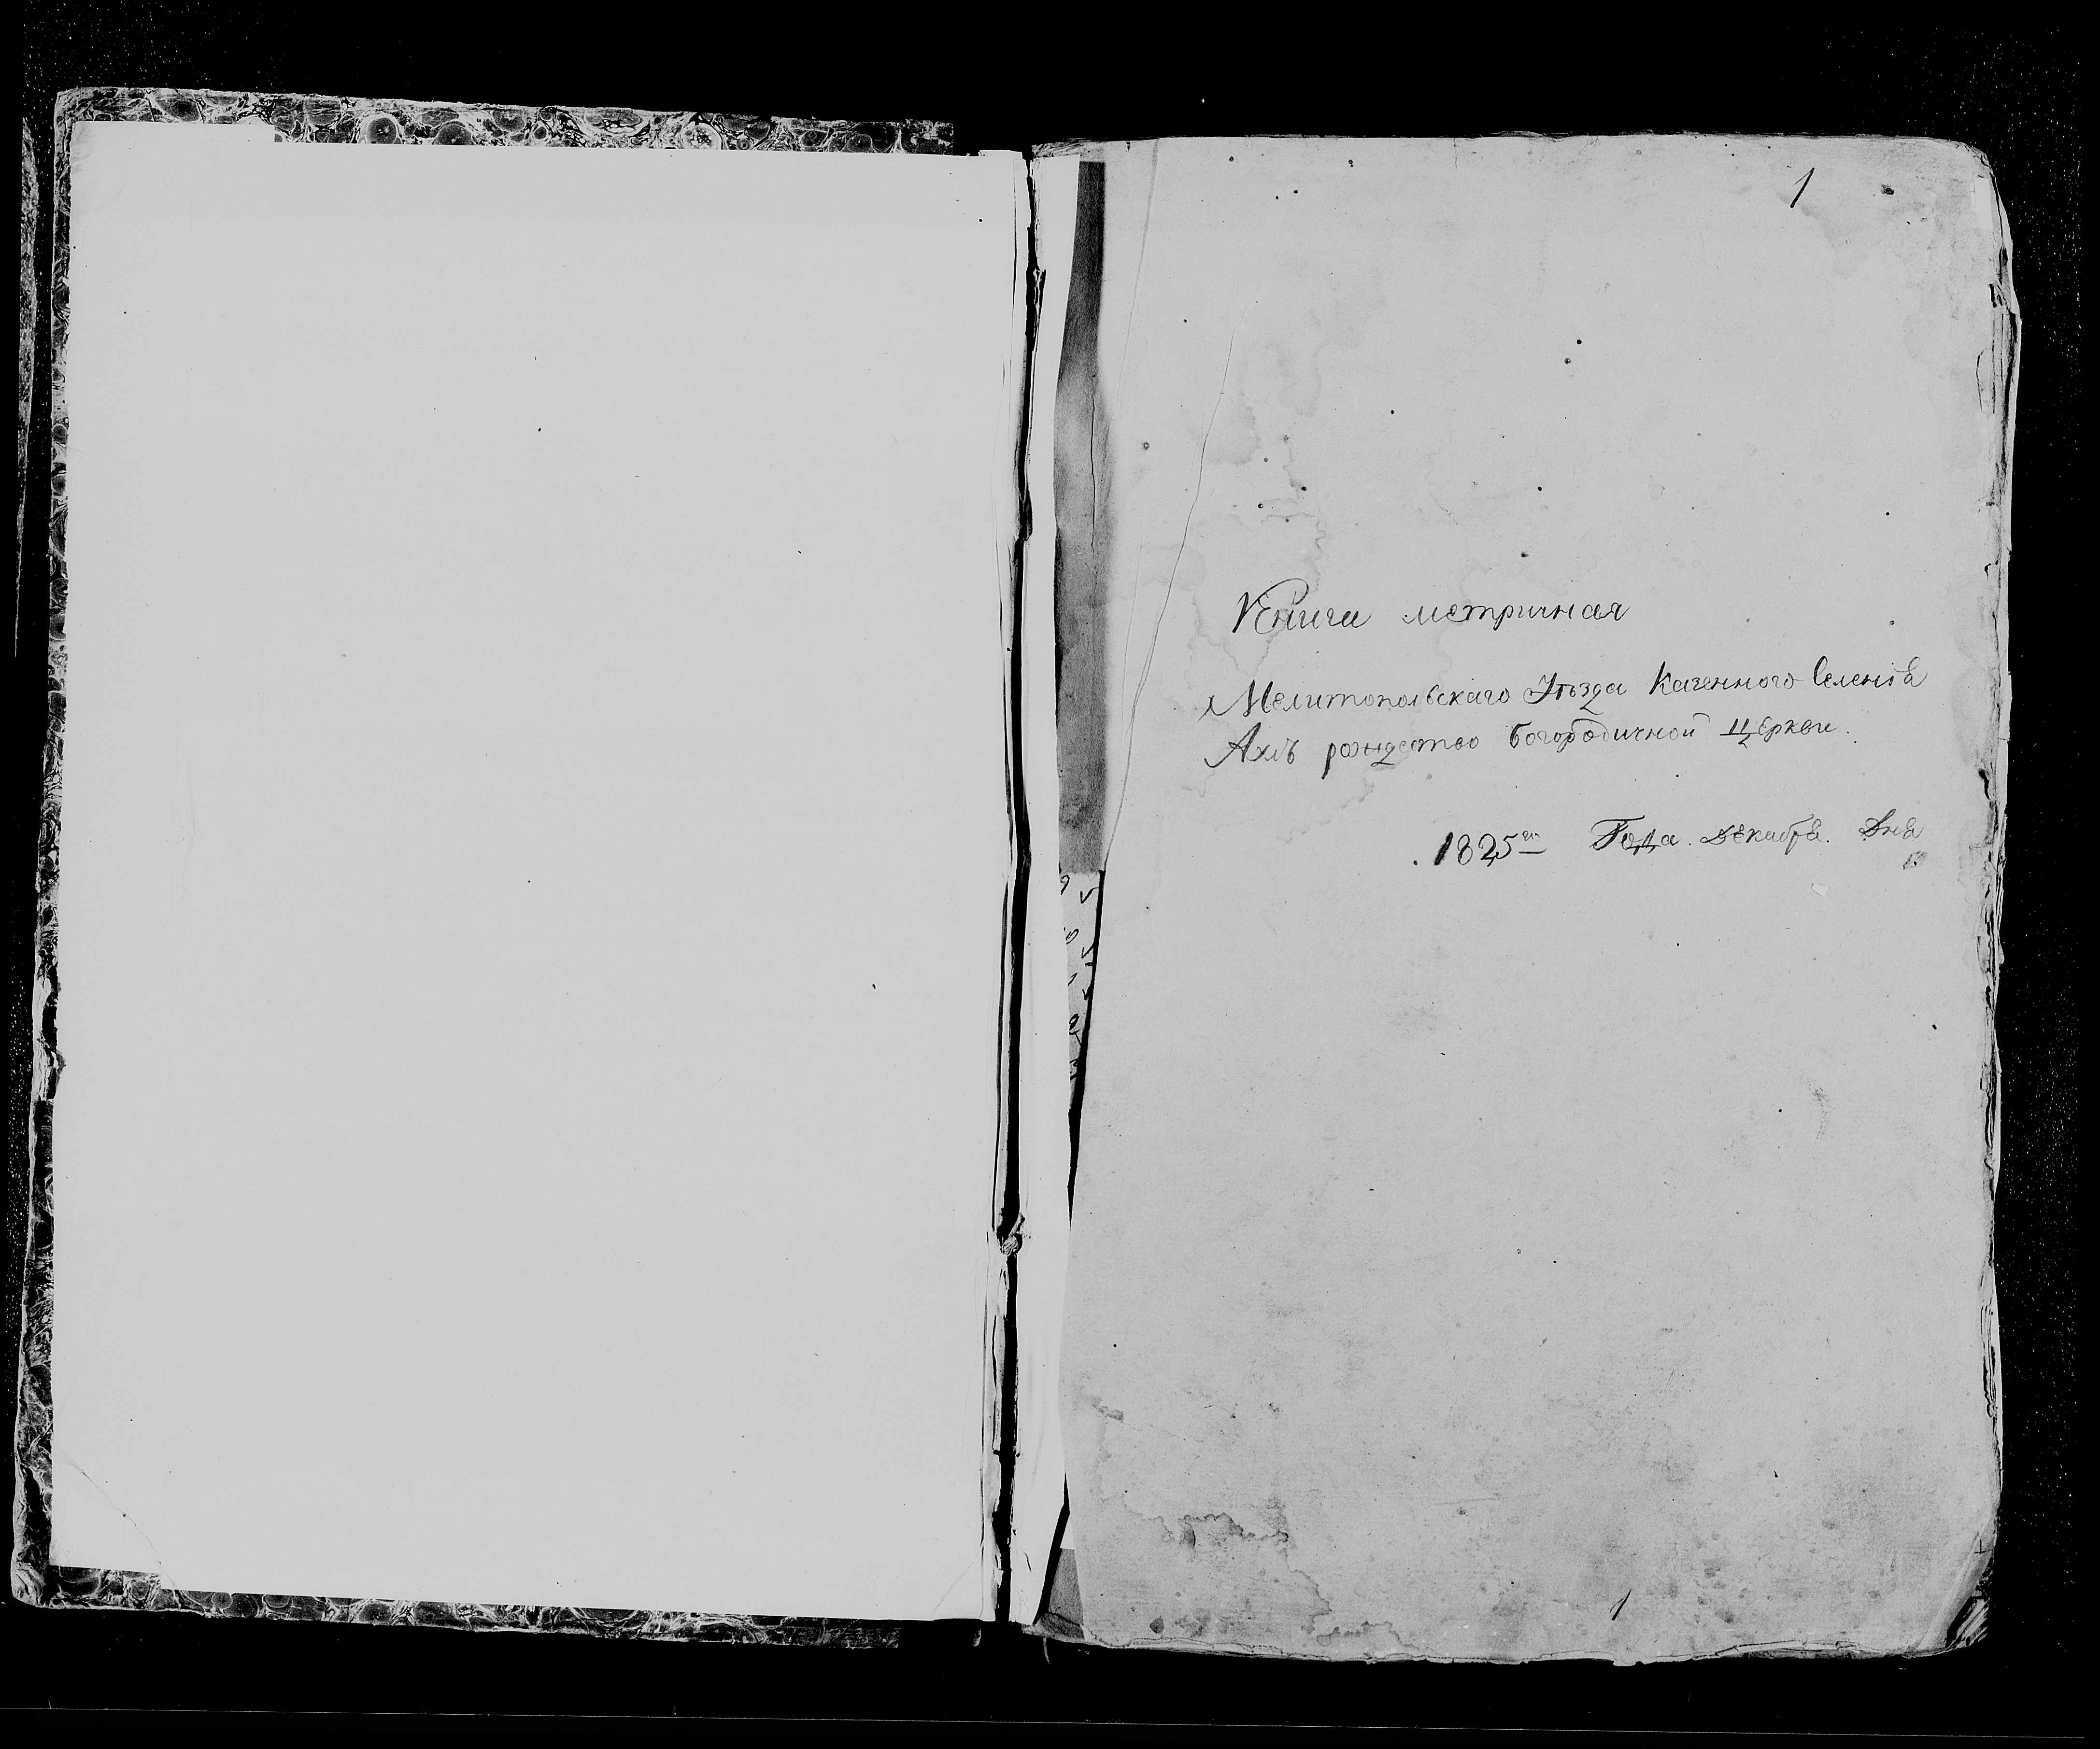 1
Книга метричная
Мелитопольскаго Уѣзда Казенного Селенїя
рождество богородичной Церкви.
1825го Года. Декабря. Дня
1